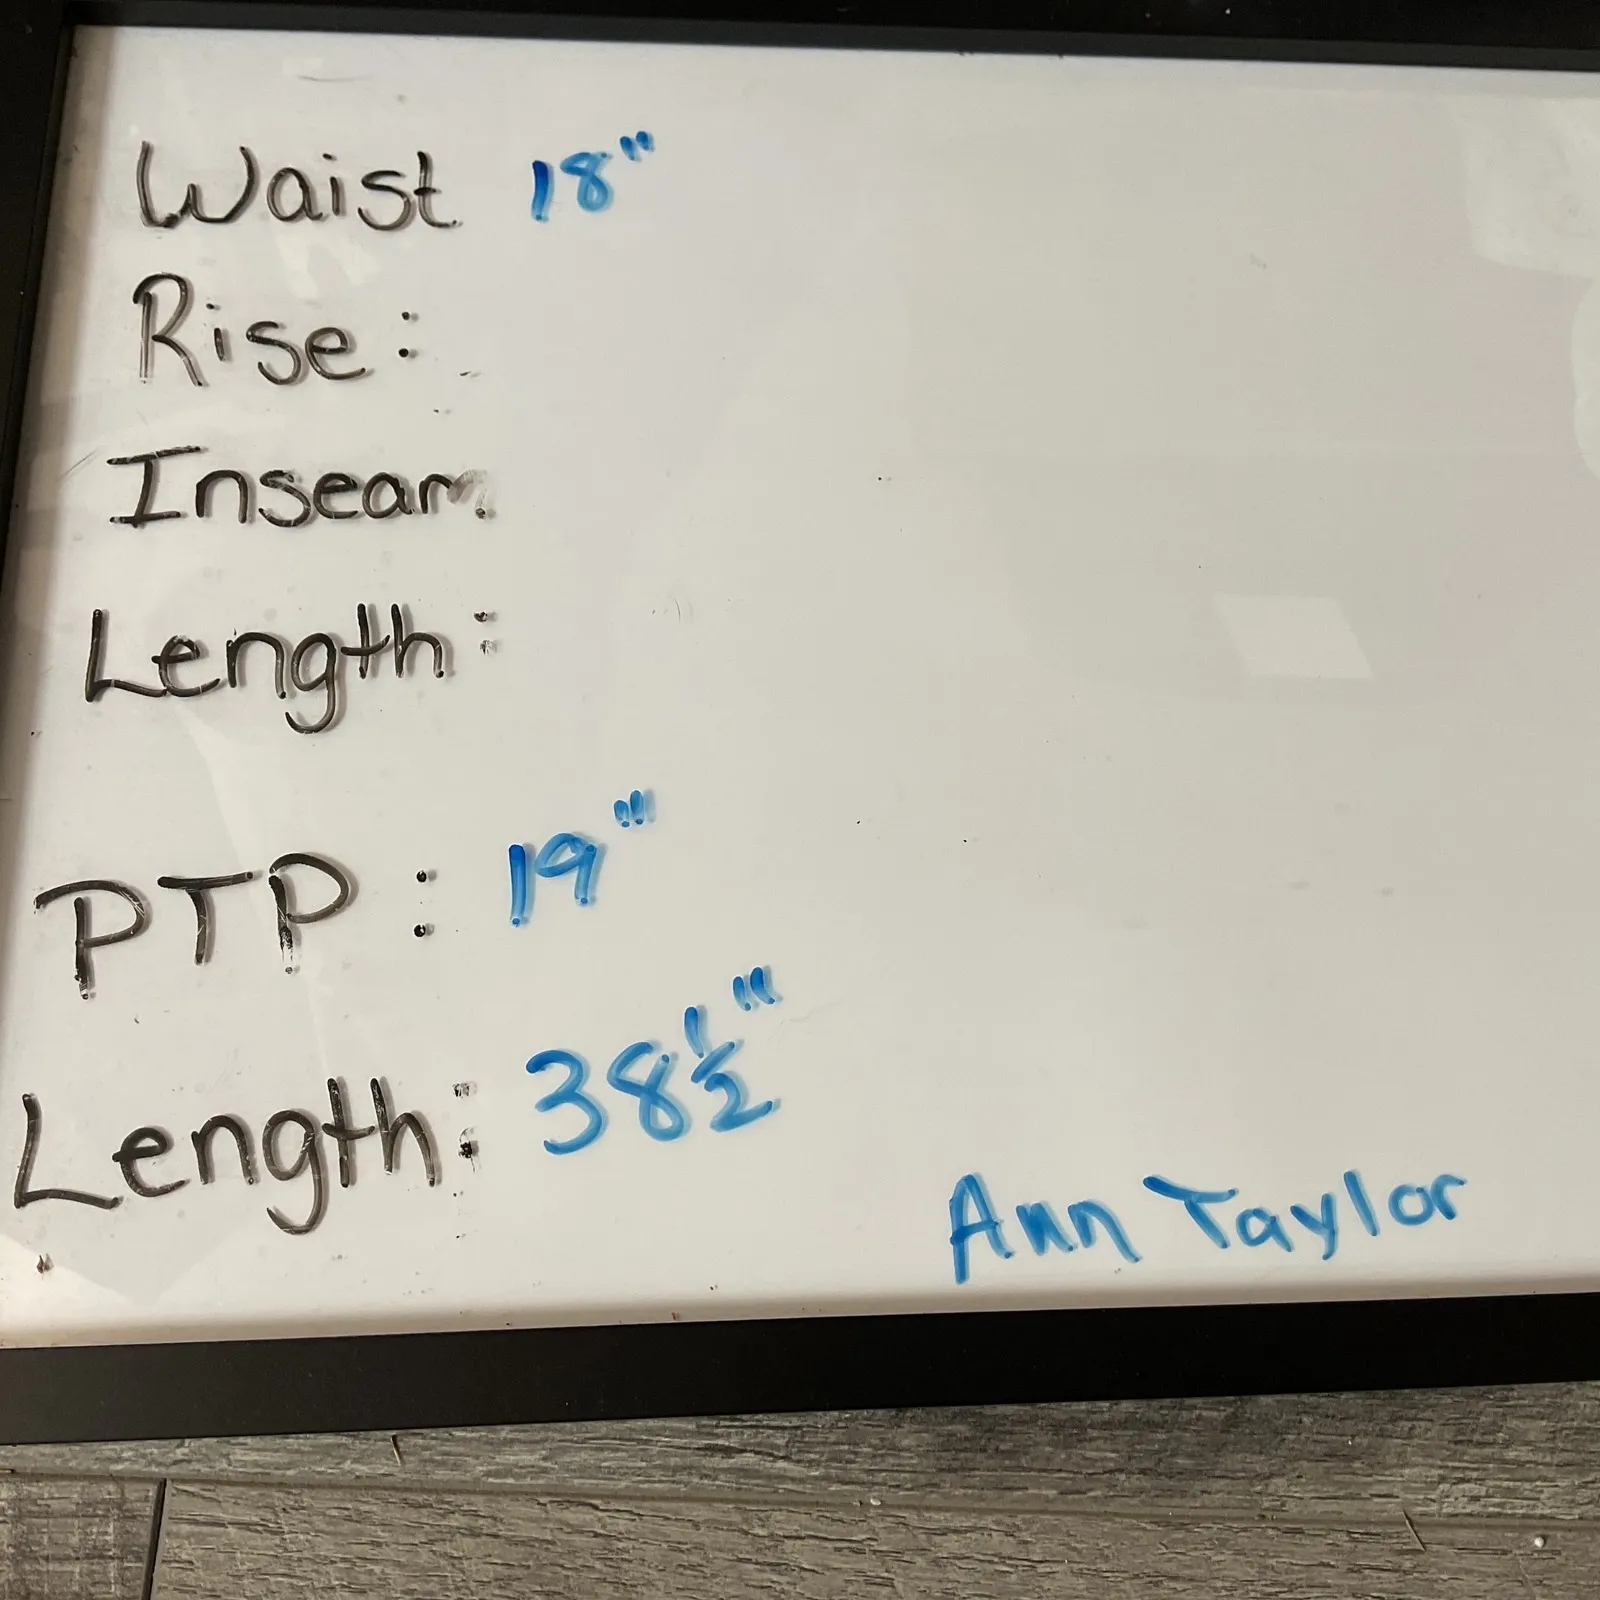 Waist 18"
Rise:
Inseam
Length:
PTP: 19"
Length: 38 1/2"
Ann Taylor